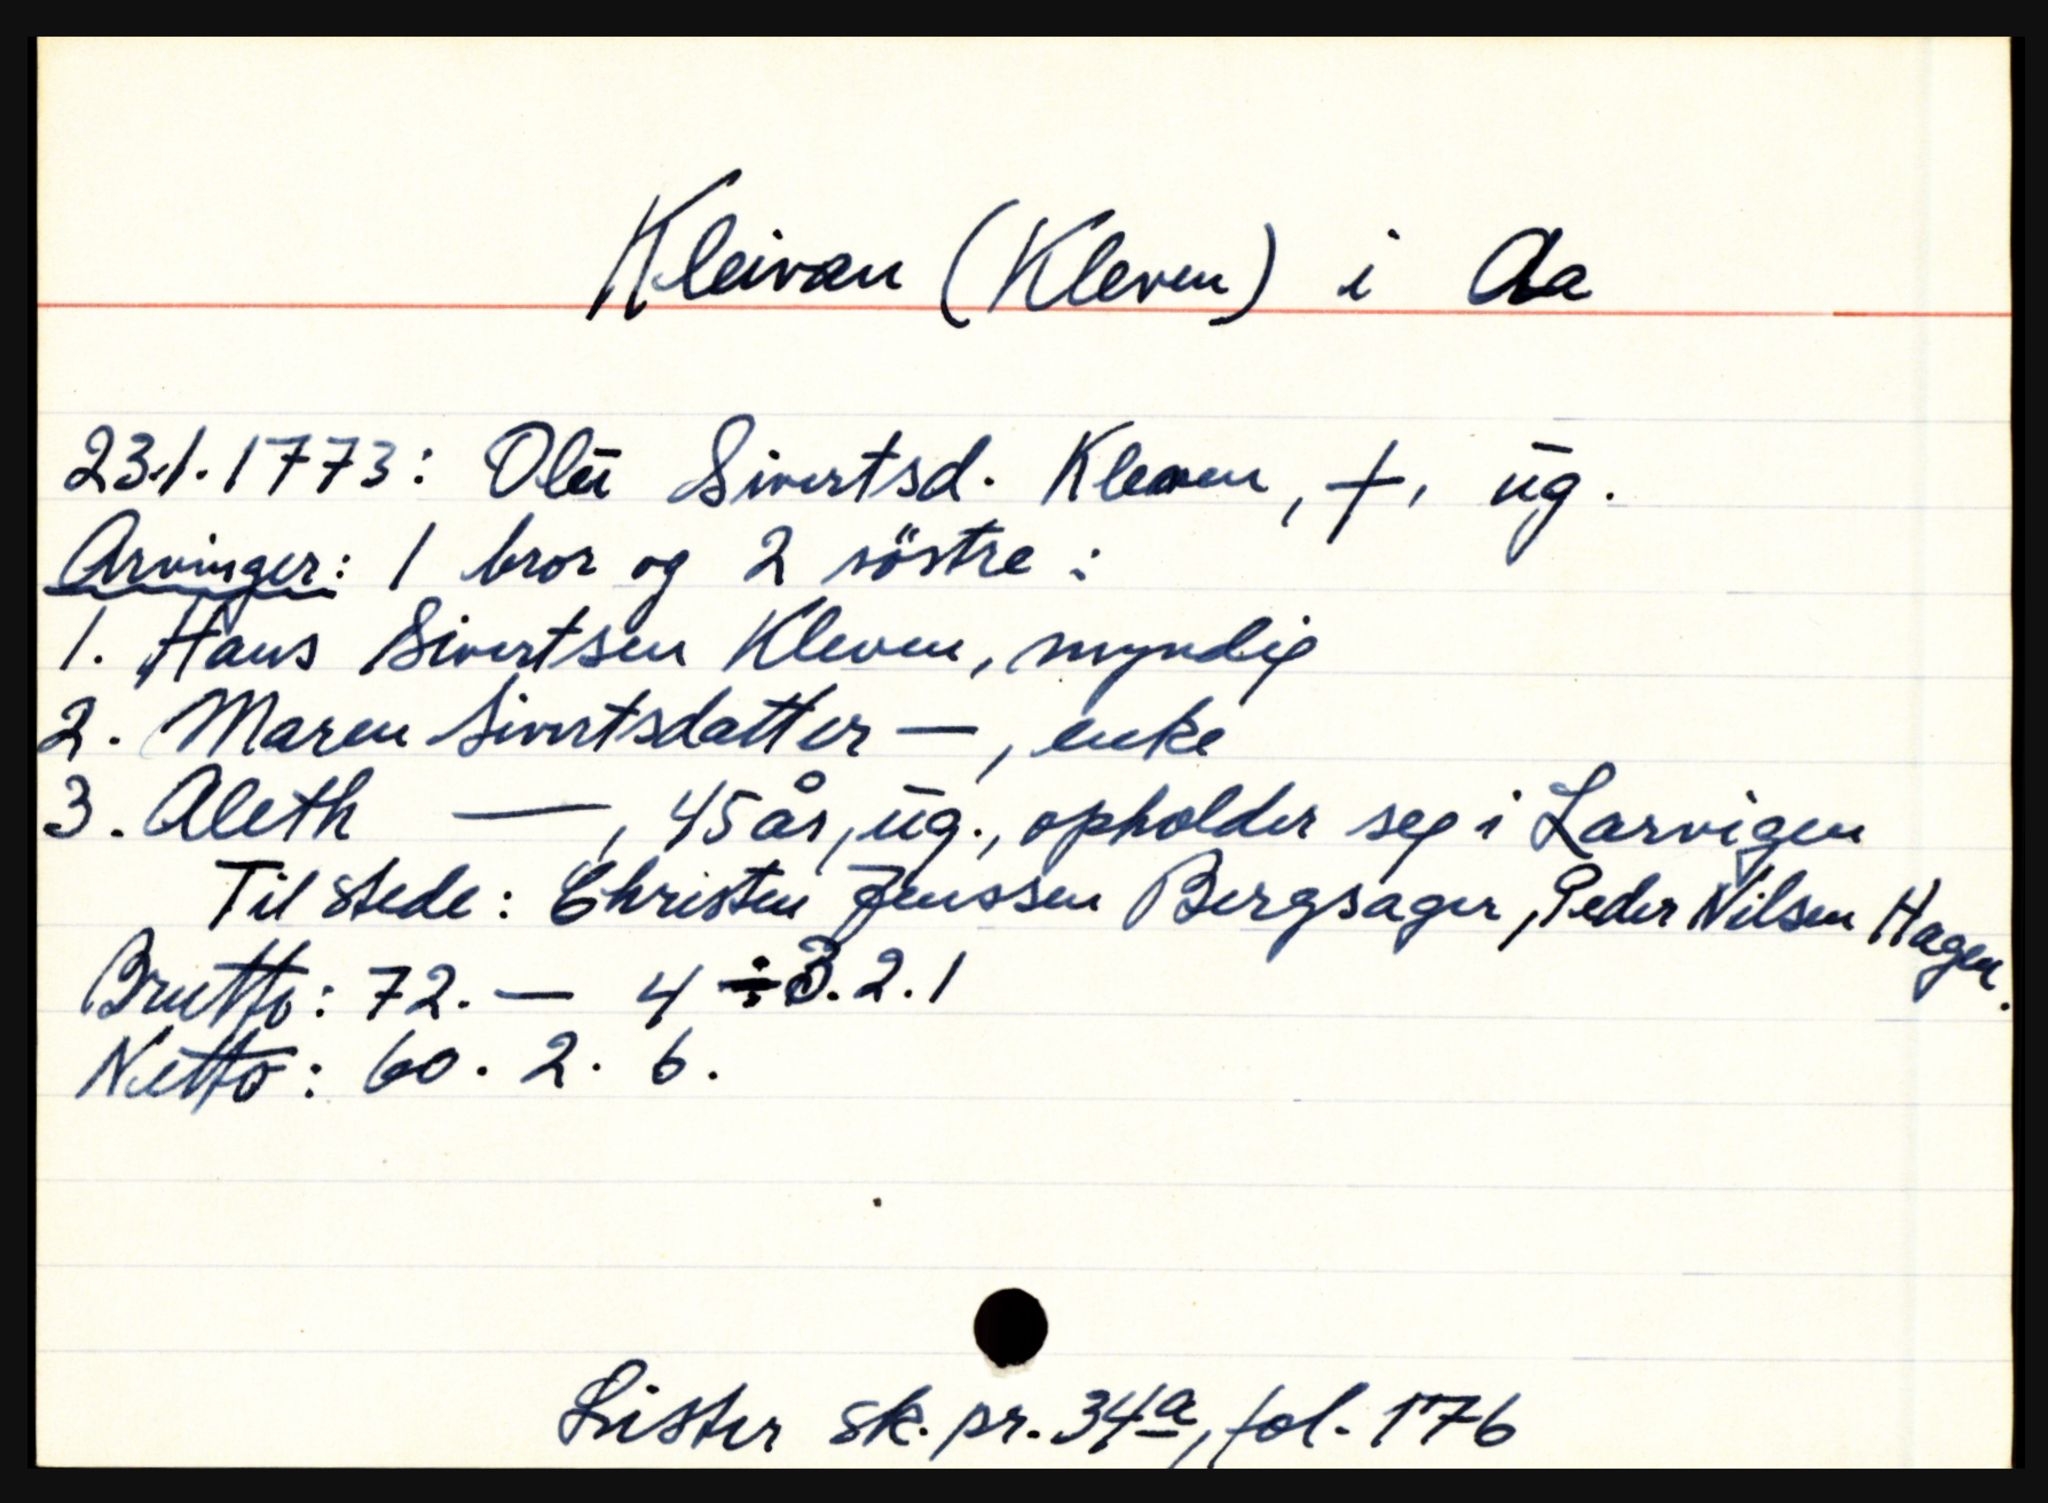 Kleivan (Kleven) i Aa
23.1.1773: Olū Sivertsd. Kleven, †, ūg.
Arvinger: 1 bror og 2 söstre:
1. Hans Sivertsen Kleven, myndig
2. Maren Sivertsdatter —, enke
3. Aleth —, 45 år, ūg., opholder seg i Larvigen
Til stede: Christen Jenssen Bergsager, Peder Nilsen Hagen.
Brutto: 72. — 4 ÷ 3.2.1
Netto: 60. 2. 6.
Lister sk. pr. 34a, fol. 176